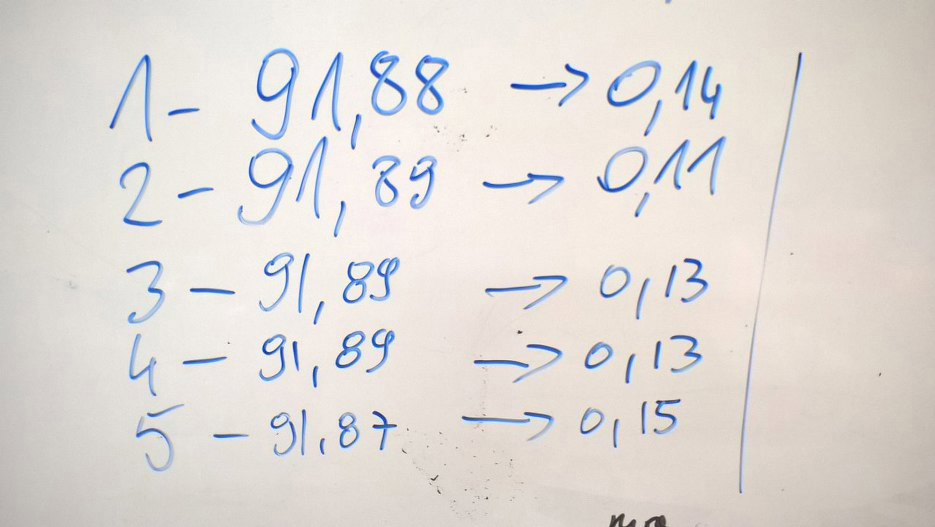 1 - 91,88 → 0,14
2 - 91,89 → 0,11
3 - 91,89 → 0,13
4 - 91,89 → 0,13
5 - 91,87 → 0,15